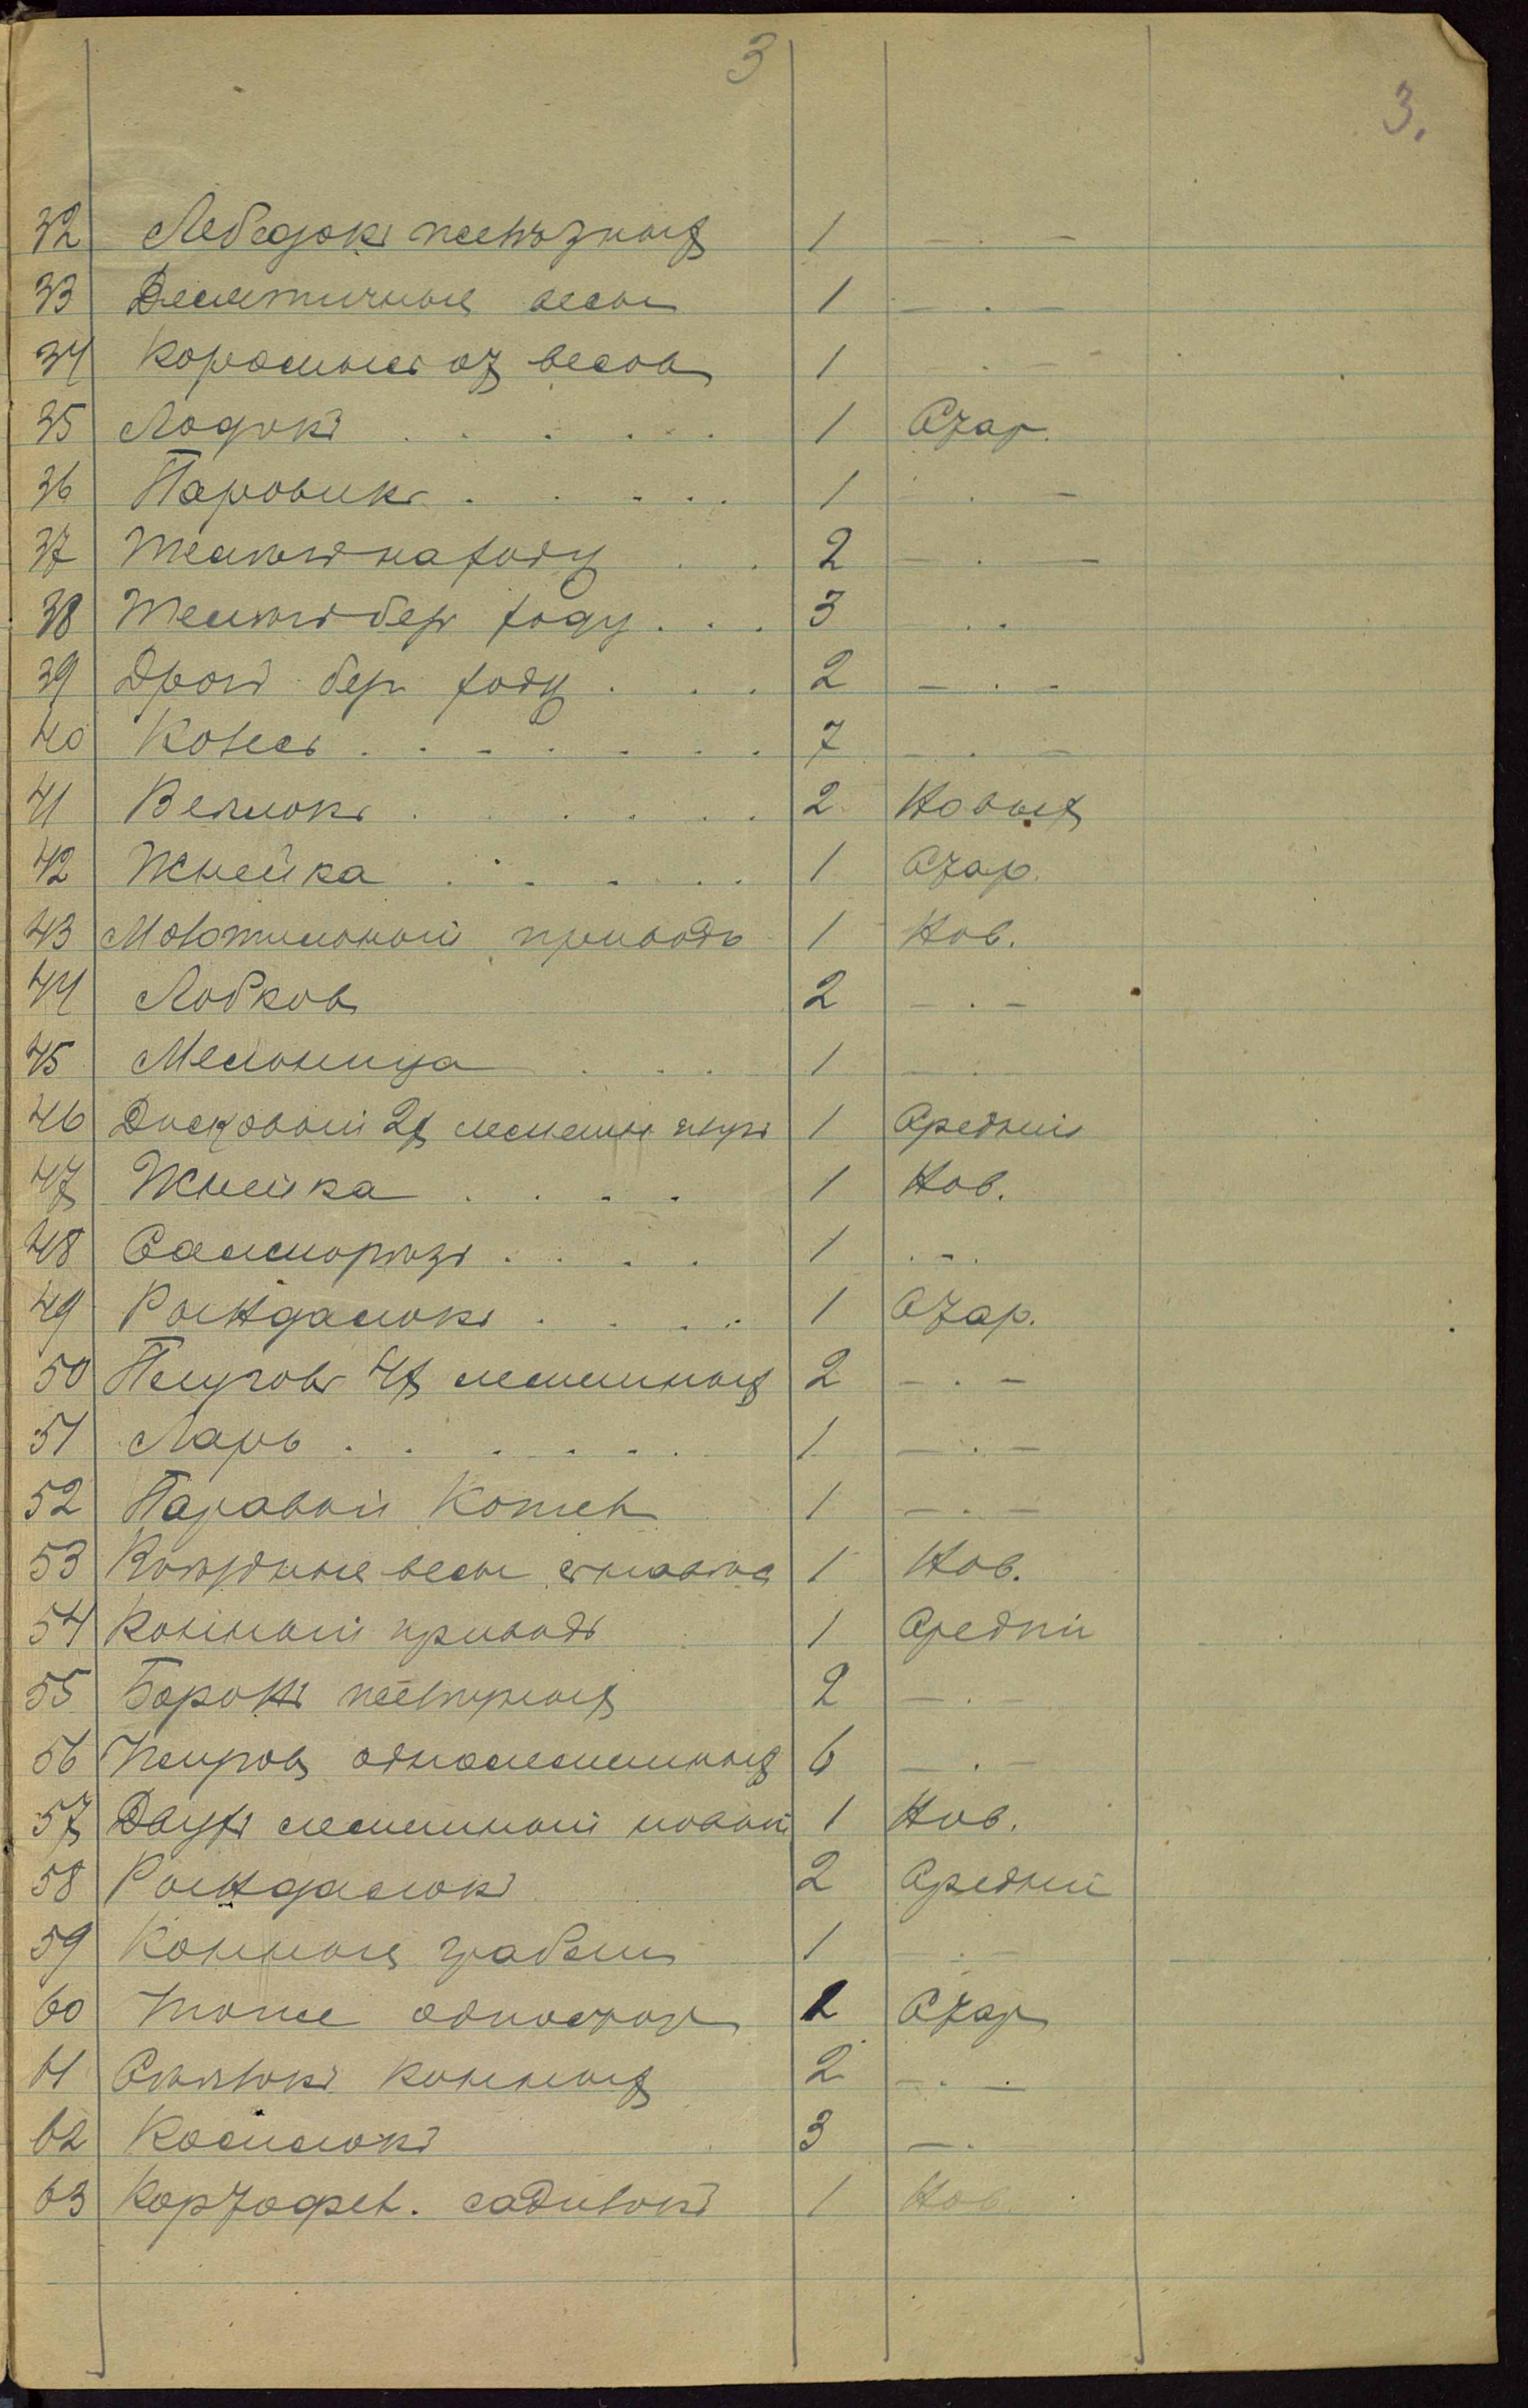 3
3.
32 Лебедокъ желѣзныхъ 1 — . —
33 Десятичные весы 1 — . —
34 Коромысло отъ весовъ 1 . —
35 Лодокъ . . . . . . 1 Стар.
36 Паровикъ . . . . . 1 . —
37 Телѣгъ на ходу . . 2 — . —
38 Телѣгъ безъ ходу . . . 3 — . .
39 Дрогъ безъ ходу . . . 2 — . —
40 Колесъ . . . . . . . 7 — . —
41 Веялокъ . . . . . . 2 Новыхъ
42 Жнейка . . . . . 1 Стар.
43 Молотильный приводъ 1 Нов.
44 Лобковъ 2 — . —
45 Мельница . . . 1 — .
46 Дисковый 2х лемешн плугъ 1 Средній
47 Жнейка . . . . 1 Нов.
48 Соломорѣзъ . . . . 1 . — .
49 Рондалокъ . . . . 1 Стар.
50 Плуговъ 4х лемешныхъ 2 — . —
51 Ларь . . . . . . 1 — . —
52 Паравой Котел 1 — . —
53 весы 1 Нов.
54 Конный приводъ 1 Средній
55 Боронъ желѣзныхъ 2 — . —
56 Плуговъ однолемешныхъ 6 — . —
57 Двухъ лемешный новый 1 Нов.
58 Рондалокъ 2 Средній
59 Конныхъ грабель 1 — . —
60 Тоже одноконн 1 Стар
61 Сѣялокъ конныхъ 2 — . —
62 Косилокъ 3 — .
63 Картофел. садилокъ 1 Нов.